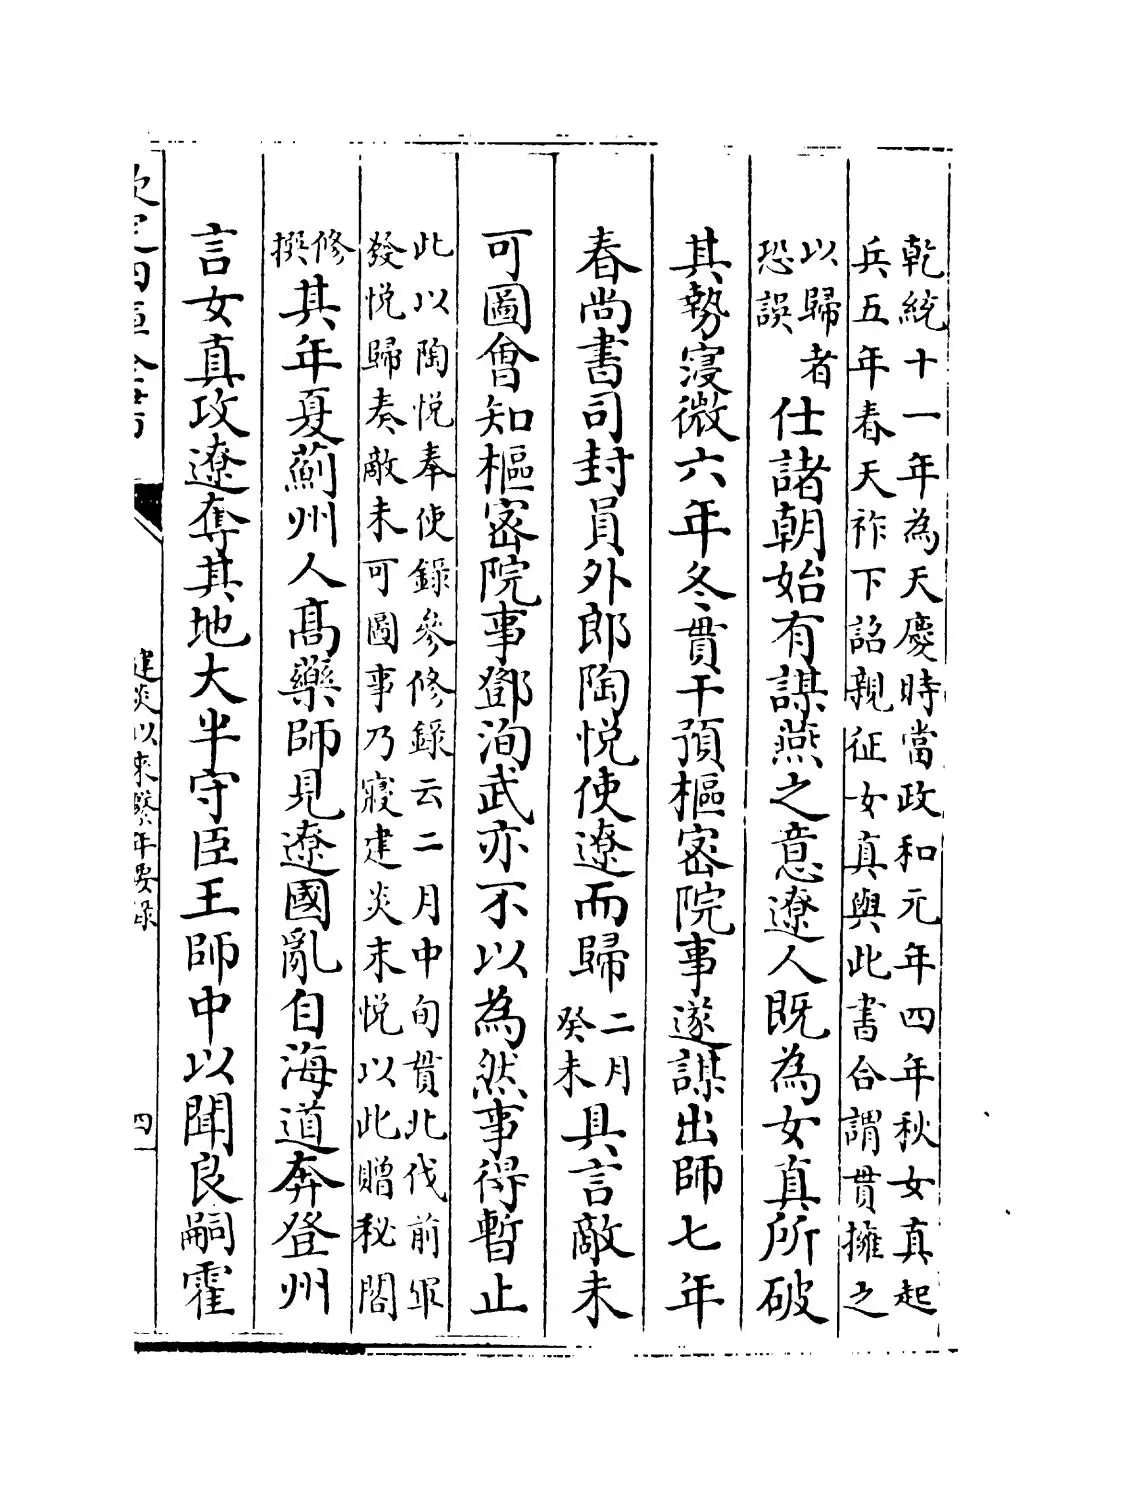 乾統十一年為天慶時當政和元年四年秋女真起
兵五年春天祚下詔親征女真與此書合謂貫擁之
以歸者
恐誤
仕諸朝始有謀燕之意遼人既為女真所破
其勢寖微六年冬貫干預樞密院事遂謀出師七年
春尚書司封員外郎陶悅使遼而歸
二月
癸未
具言敵未
可圖會知樞密院事鄧洵武亦不以為然事得暫止
此以陶悅奉使錄參修錄云二月中旬貫北伐前軍
發悅歸奏敵未可圖事乃寢建炎末悅以此贈秘閣
修
撰
其年夏薊州人髙藥師見遼國亂自海道奔登州
言女真攻遼奪其地大半守臣王師中以聞良嗣霍
建炎以來繫年要錄
四